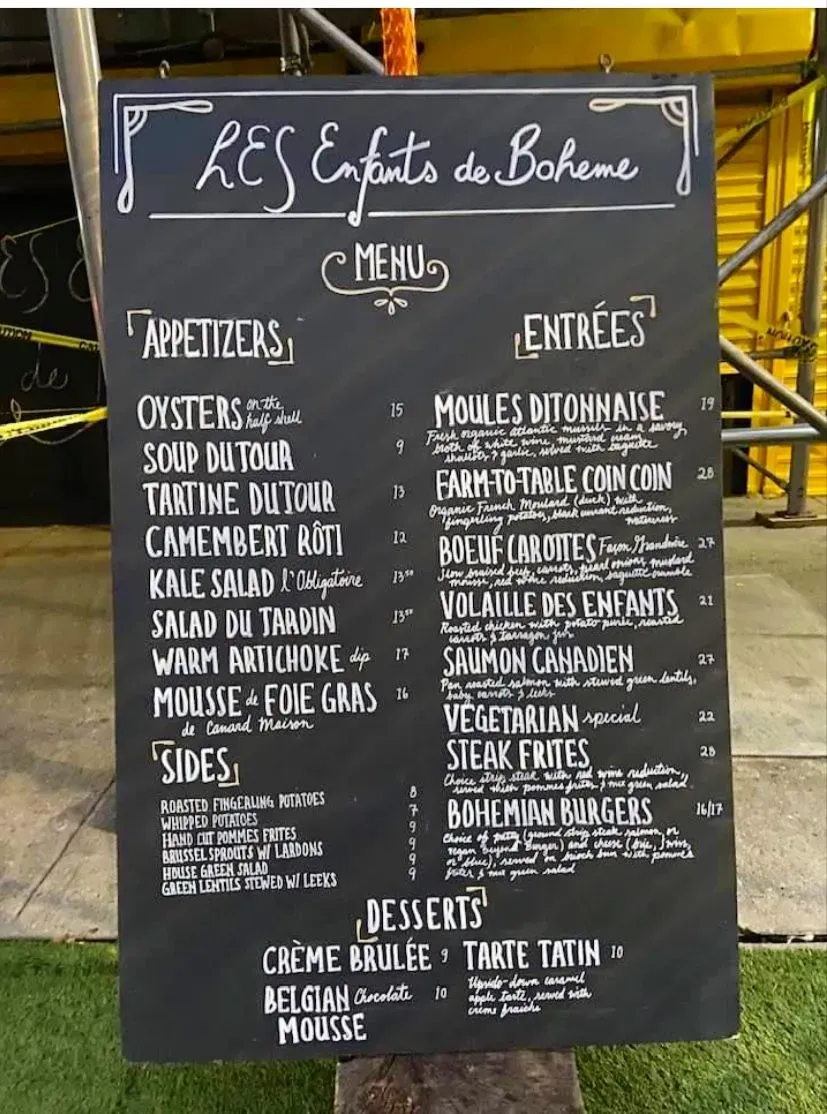 LES Enfants de Boheme
MENU
APPETIZERS
OYSTERS on the half shell 15
SOUP DU TOUR 9
TARTINE DU TOUR 13
CAMEMBERT RÔTI 12
KALE SALAD l'Obligatoire 13⁵⁰
SALAD DU TARDIN 13⁵⁰
WARM ARTICHOKE dip 17
MOUSSE de FOIE GRAS 16
de Canard Maison
SIDES
ROASTED FINGERLING POTATOES 8
WHIPPED POTATOES 7
HAND CUT POMMES FRITES 9
BRUSSEL SPROUTS W/ LARDONS 9
HOUSE GREEN SALAD 9
GREEN LENTILS STEWED W/ LEEKS 9
ENTRÉES
MOULES DITONNAISE 19
Fresh organic atlantic mussels in a savory
broth of white wine, mustard cream,
shallots, & garlic, served with baguette
FARM-TO-TABLE COIN COIN 28
Organic French Moulard (duck) with
fingerling potatoes, black currant reduction,
watercress
BOEUF CAROTTES Façon Grandmère 27
Slow braised beef, carrots, pearl onions, mustard
mousse, red wine reduction, baguette crumble
VOLAILLE DES ENFANTS 21
Roasted chicken with potato purée, roasted
carrots & tarragon jus
SAUMON CANADIEN 27
Pan roasted salmon with stewed green lentils,
baby carrots & leeks
VEGETARIAN special 22
STEAK FRITES 28
Choice strip steak with red wine reduction,
served with pommes frites, & mix green salad
BOHEMIAN BURGERS 16/17
Choice of patty (ground strip steak, salmon, or
vegan Beyond Burger) and cheese (brie, swiss,
or blue), served on brioch bun with pommes
frites & mix green salad
DESSERTS
CRÈME BRULÉE 9
BELGIAN Chocolate 10
MOUSSE
TARTE TATIN 10
Upside-down caramel
apple tarte, served with
crème fraiche
CAUTION